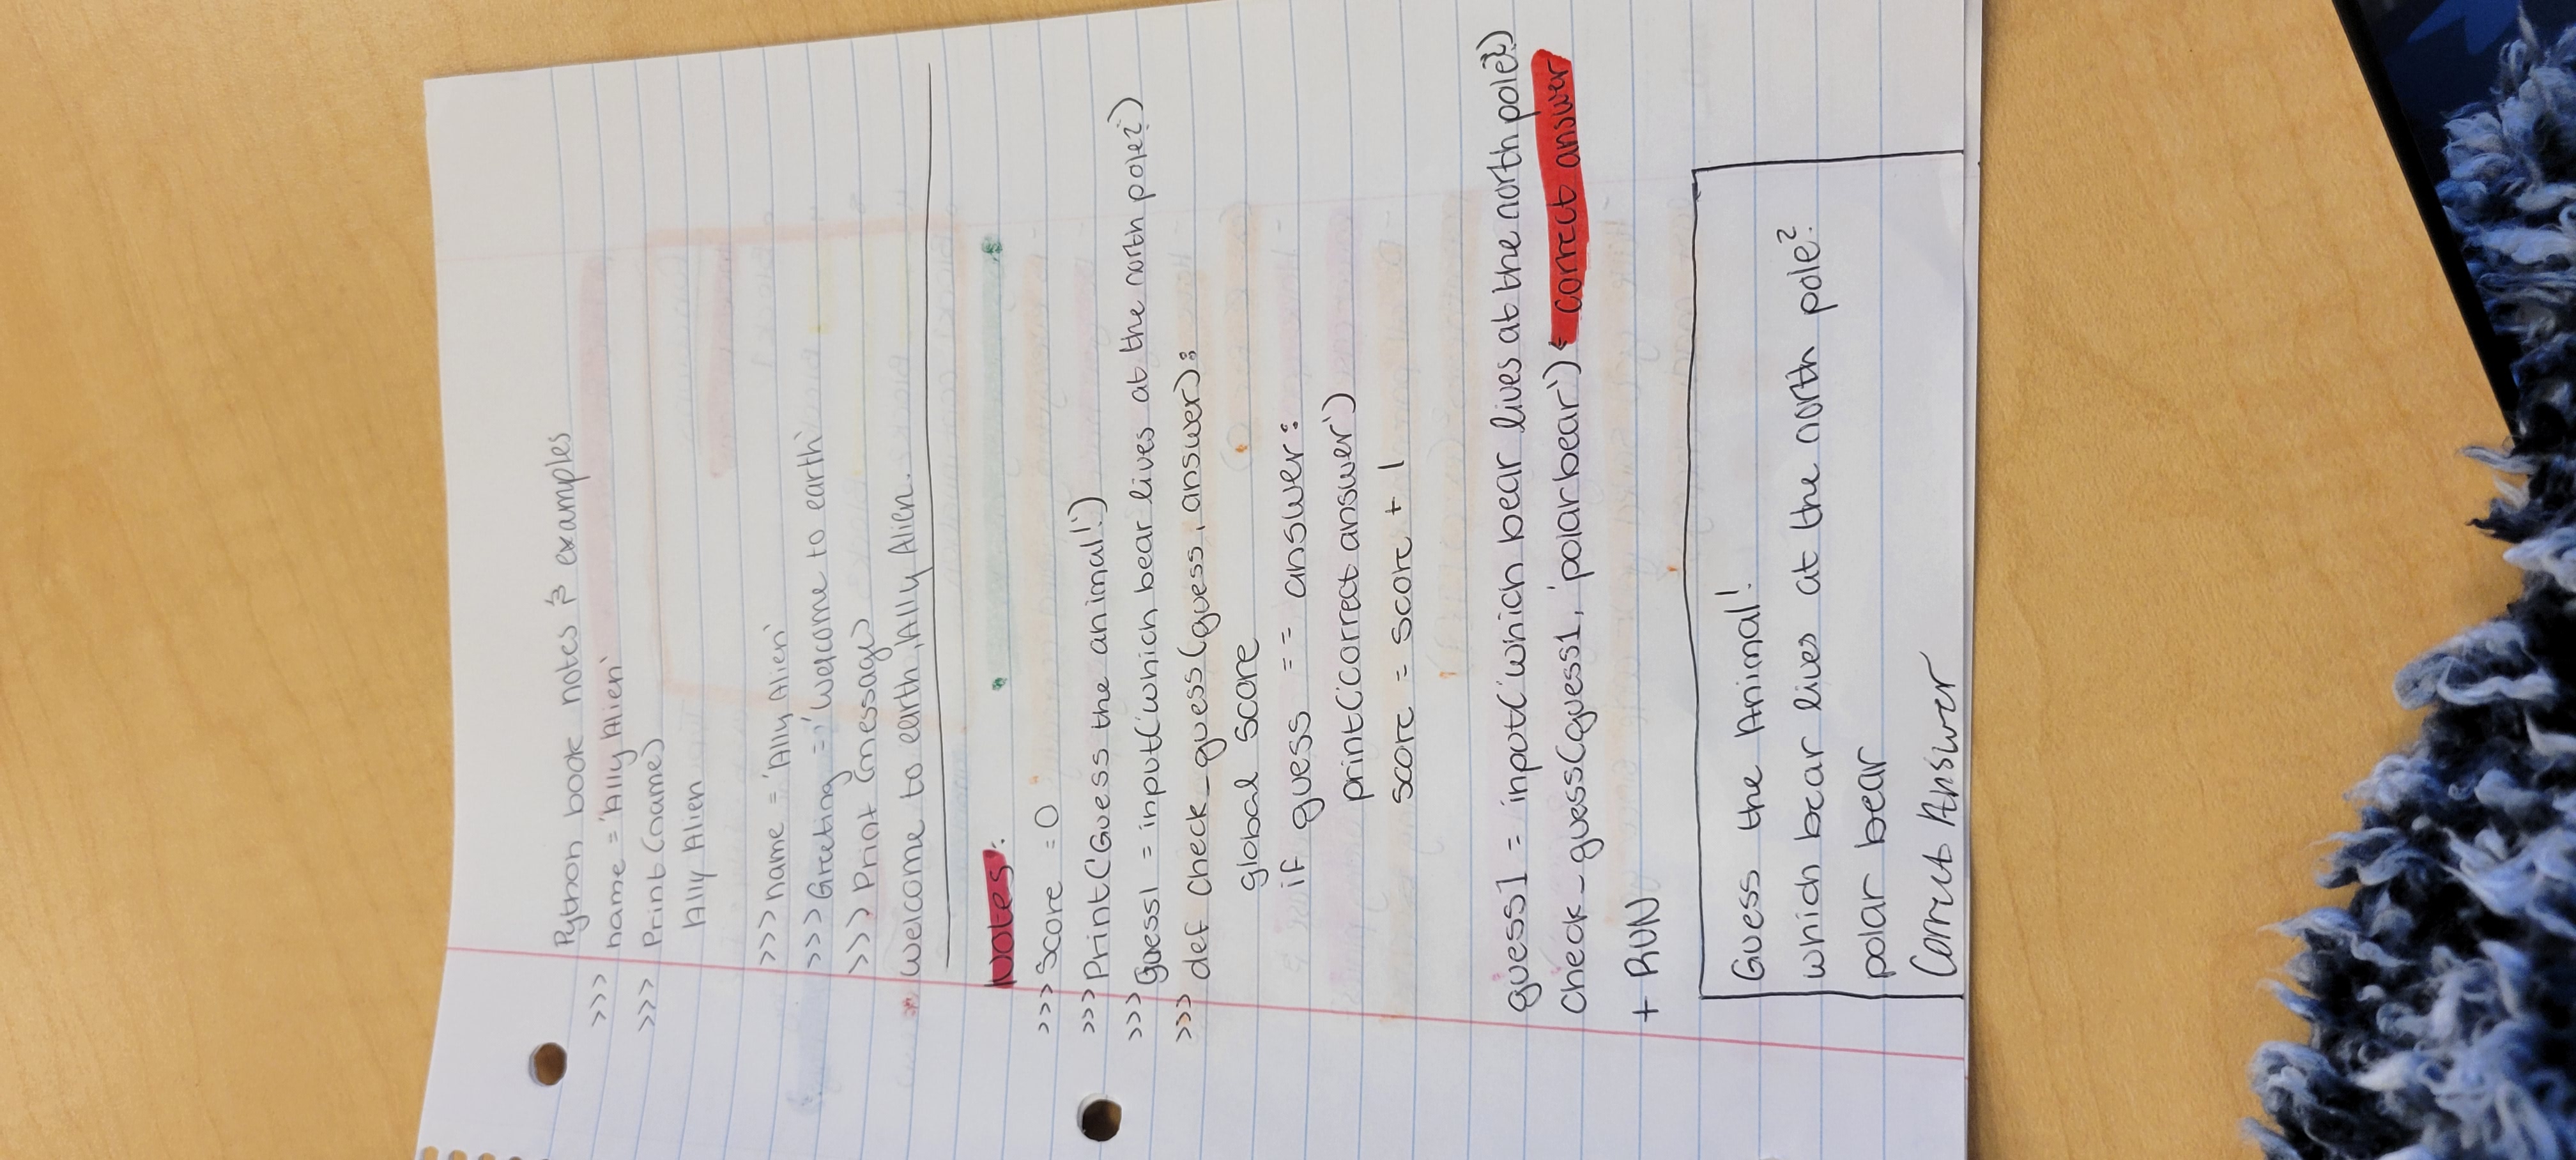 Python book notes & examples
>>> name = 'Ally Alien'
>>> Print (name)
Ally Alien
>>> name = 'Ally Alien'
>>> Greeting = 'Welcome to earth'
>>> Print (message)
* Welcome to earth, Ally Alien.
Notes:
>>> Score = 0
>>> Print('Guess the animal!')
>>> Guess1 = input('which bear lives at the north pole?')
>>> def check_guess(guess, answer):
global score
if guess == answer:
print('correct answer')
score = score + 1
guess1 = input('which bear lives at the north pole?')
Check_guess(guess1, 'polar bear') ← correct answer
+ RUN
Guess the Animal!
which bear lives at the north pole?
polar bear
Correct Answer